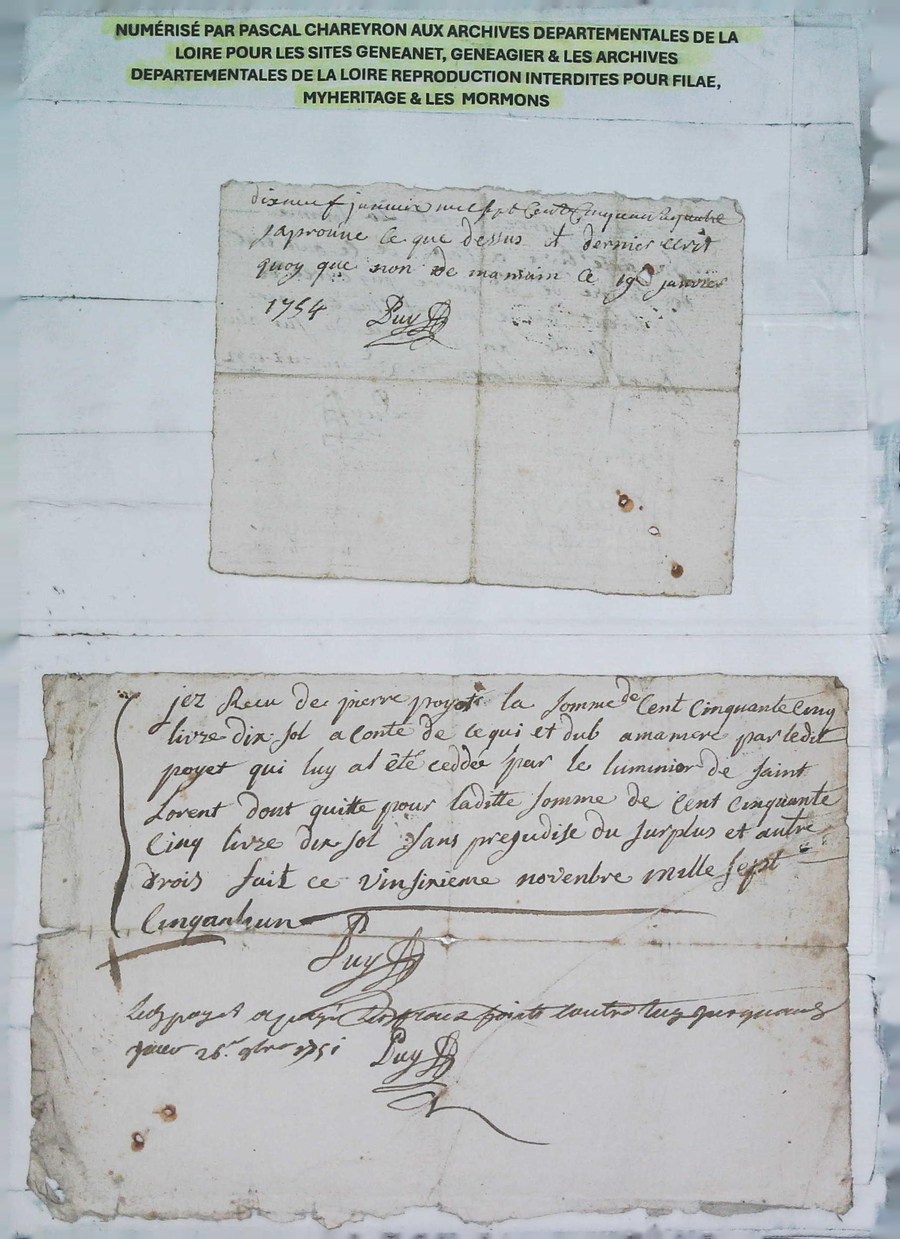 NUMÉRISÉ PAR PASCAL CHAREYRON AUX ARCHIVES DEPARTEMENTALES DE LA
LOIRE POUR LES SITES GENEANET, GENEAGIER & LES ARCHIVES
DEPARTEMENTALES DE LA LOIRE REPRODUCTION INTERDITES POUR FILAE,
MYHERITAGE & LES MORMONS
dixneuf janvier mil sept Cent Cinquante quatre
japrouve ce que dessus et dernier ecrit
quoy que non de mamain ce 19e janvier
1754 Puy
jez Receu de pierre poyet la somme de Cent Cinquante Cinq
livre dix sol aconte de cequi et dub amamere par ledit
poyet qui luy at été ceddée par le luminier de saint
Lorent dont quitte pour laditte somme de Cent Cinquante
Cinq livre dix sol sans prejudise du surplus et autre
drois fait ce vinsixieme novenbre mille sept
Cinquanhun
Puy
Ledt poyet a payé les fraix faits contre luy jusques
26e 9bre 1751 Puy